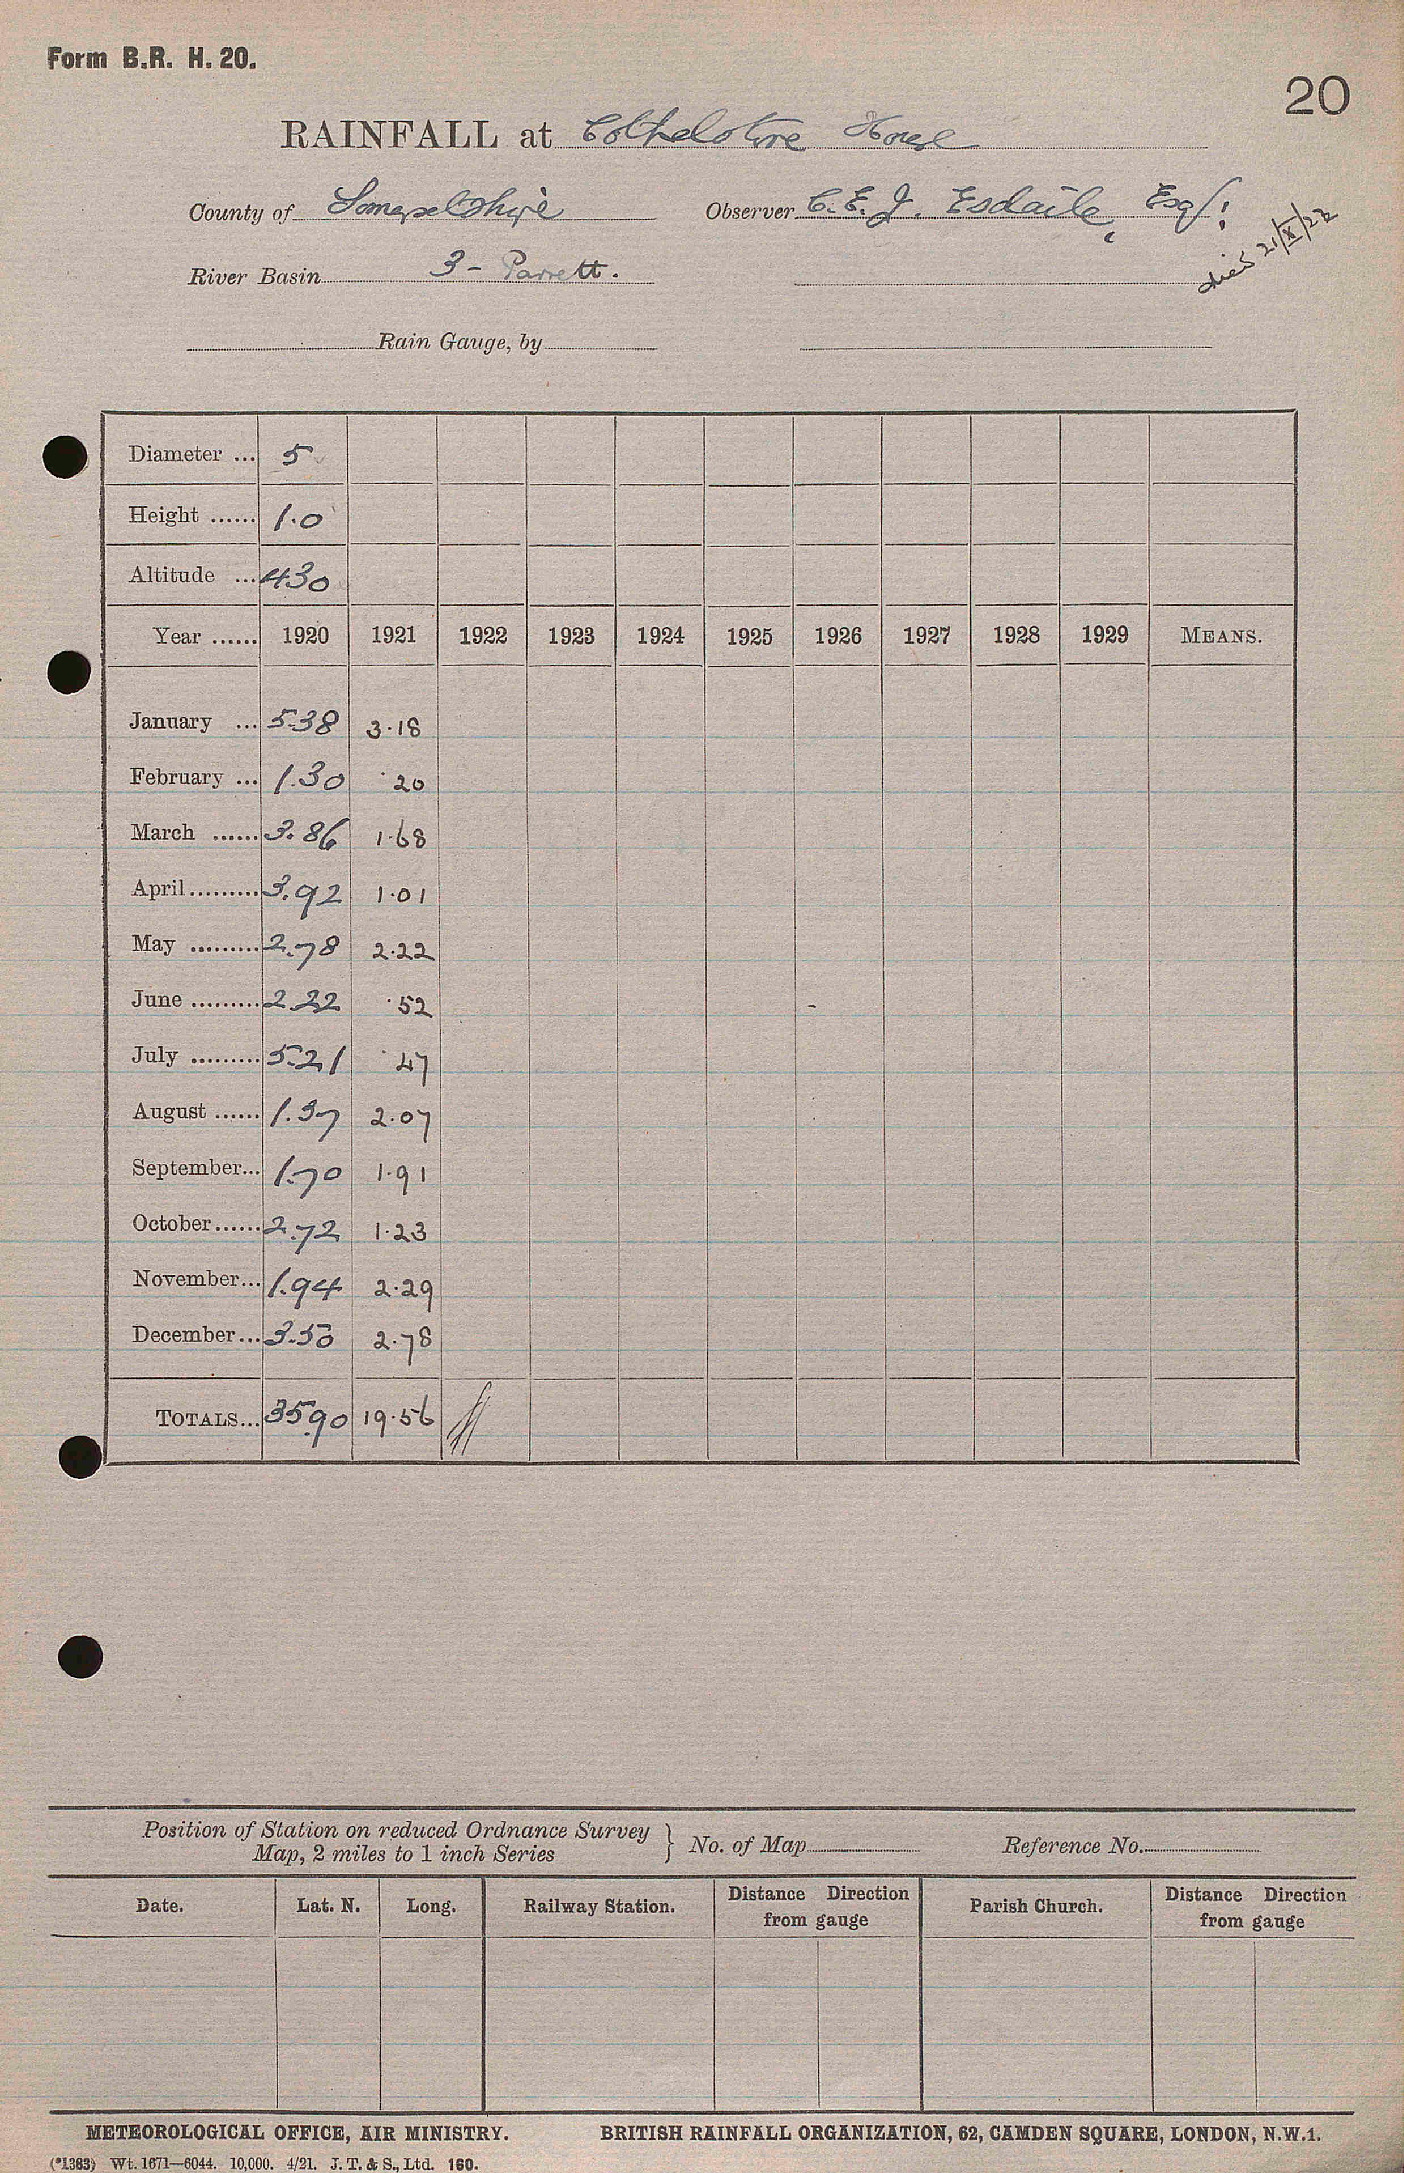 Form B.R. H. 20.
20
RAINFALL at Cothelstone House
County of Somersetshire Observer C. E. J. Esdaile, Esq.
died 21/X/22
River Basin 3 - Parrett.
Rain Gauge, by
Diameter ... 5
Height ...... 1.0
Altitude ... 430
Year ...... 1920 1921 1922 1923 1924 1925 1926 1927 1928 1929 MEANS.
January ... 5.38 3.18
February ... 1.30 .20
March ...... 3.86 1.68
April ......... 3.92 1.01
May ......... 2.78 2.22
June ......... 2.22 .52
July ......... 5.21 .47
August ...... 1.37 2.07
September... 1.70 1.91
October...... 2.72 1.23
November... 1.94 2.29
December... 3.50 2.78
TOTALS... 35.90 19.56
Position of Station on reduced Ordnance Survey
Map, 2 miles to 1 inch Series } No. of Map Reference No.
Date. Lat. N. Long. Railway Station. Distance Direction from gauge Parish Church. Distance Direction from gauge
METEOROLOGICAL OFFICE, AIR MINISTRY. BRITISH RAINFALL ORGANIZATION, 62, CAMDEN SQUARE, LONDON, N.W.1.
(*1383) Wt. 1671—6044. 10,000. 4/21. J. T. & S., Ltd. 160.